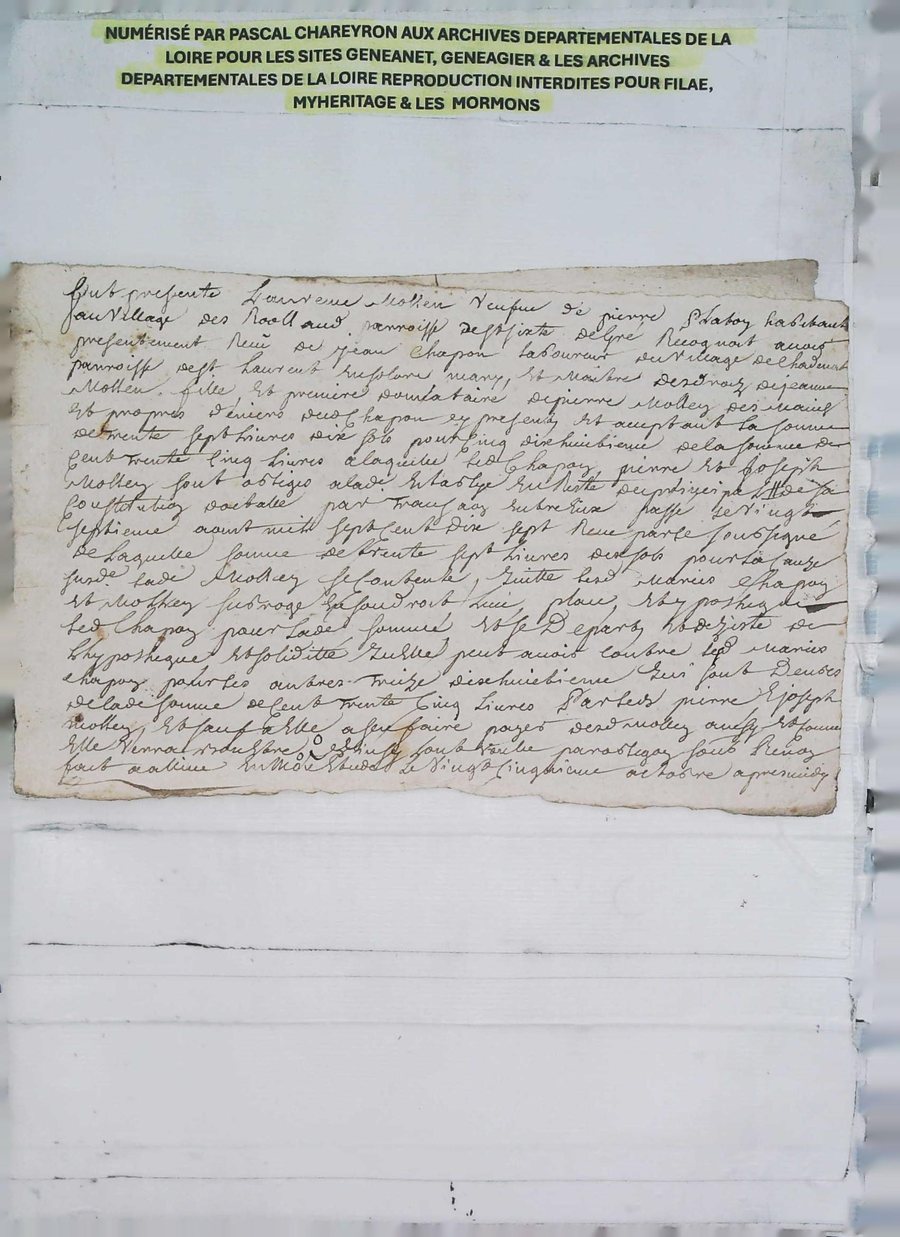 NUMÉRISÉ PAR PASCAL CHAREYRON AUX ARCHIVES DEPARTEMENTALES DE LA
LOIRE POUR LES SITES GENEANET, GENEAGIER & LES ARCHIVES
DEPARTEMENTALES DE LA LOIRE REPRODUCTION INTERDITES POUR FILAE,
MYHERITAGE & LES MORMONS
fut presente Laurence Mollen veufue de pierre habitante
au village des parroisse de st sixte de gré Recognoit avoir
presentement Receu de jean Chapon laboureur du village de
parroisse de st Laurent en solore mary, et Maitre des droitz de jeanne
Mollen fille, et premiere donnataire de pierre Mollen des Mains
et propres deniers dud Chapon cy present et acceptant la somme
de trente sept livres dix sols pour cinq dixhuitieme de la somme de
cent trente cinq livres a laquelle led Chapon, pierre et joseph
Mollen sont obligés a lade en reste du principal de la
Constitution par entre eux passé le vingt
septieme aoust mil sept cent dix sept Receue par le soussigné
de Laquelle somme de trente sept livres dix sols pour la cause
susde lade Mollen se contente, quitte lesd Mariés Chapon
et Mollen subroge en son droit lieu, place, et hypotheque
led Chapon pour lade somme et se depart et deziste de
Lhypotheque et soliditté quelle peut avoir contre lesd Mariés
Chapon pour les autres treize dixhuitieme qui sont deues
de lade somme de cent trente cinq livres par lesd pierre et joseph
Mollen, et sauf a elle a sen faire payer desd Mollen ainsy et comme
Elle verra par obligation sous Renon
fait a en Mon Etude Le vingt cinquieme octobre apres midy